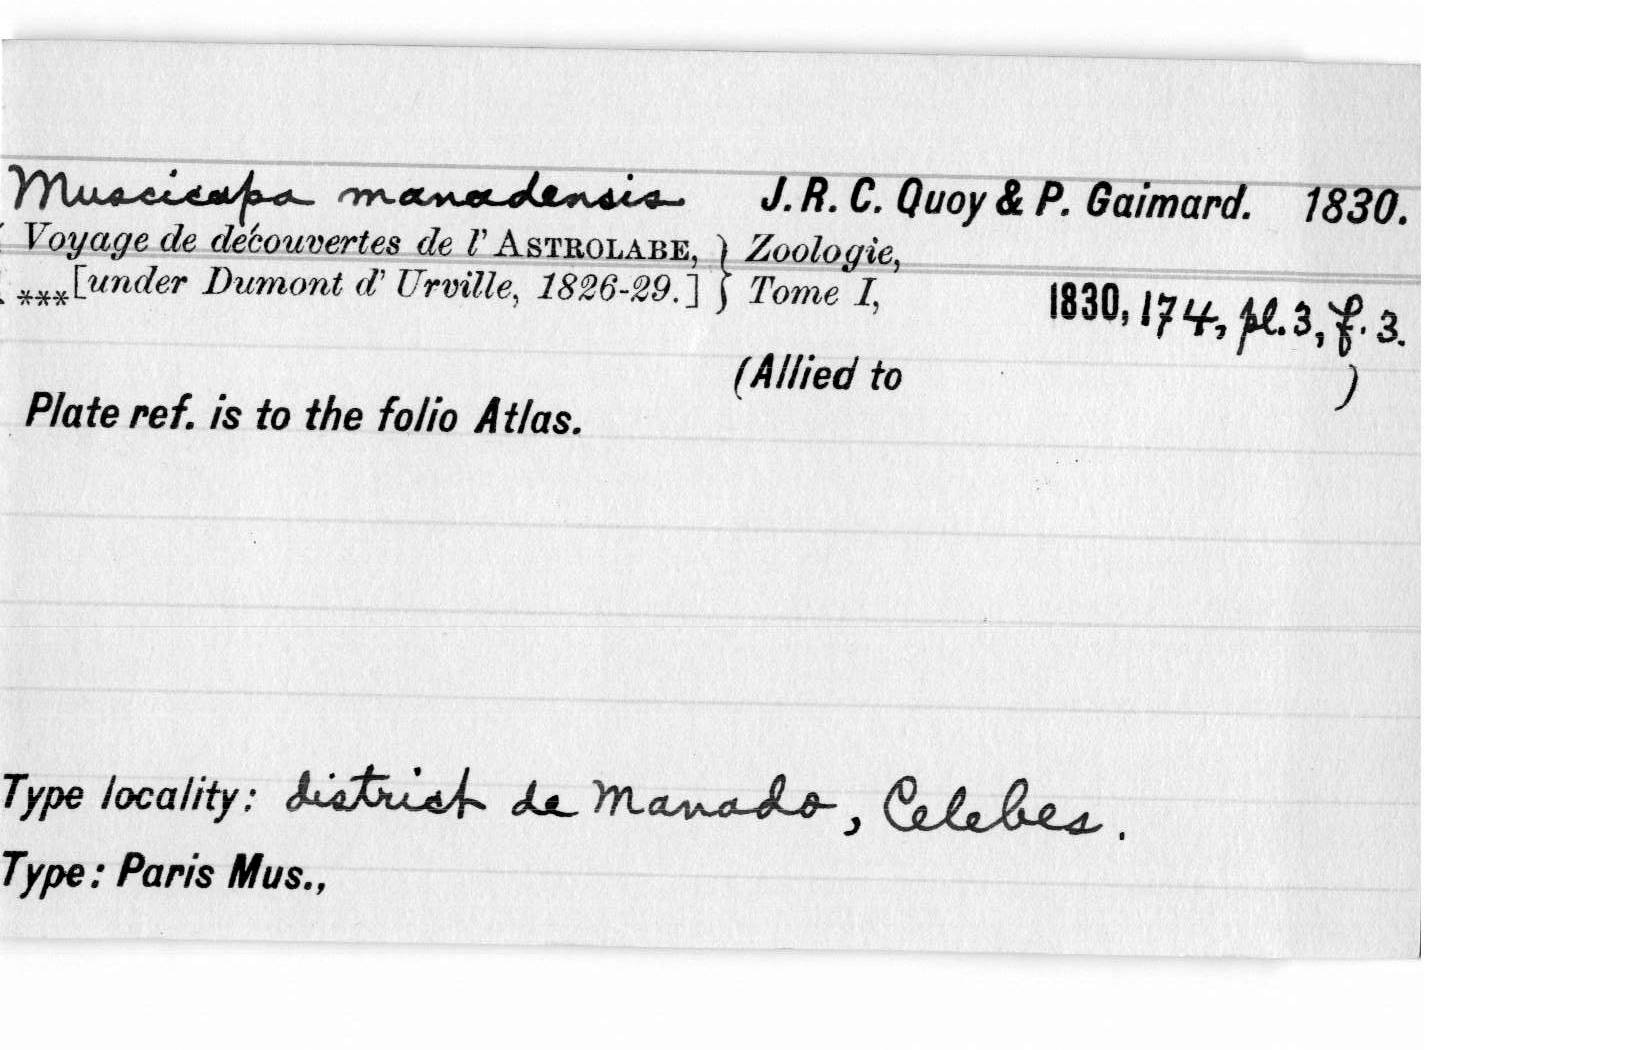 Muscicapa manadensis J. R. C. Quoy & P. Gaimard. 1830.
Voyage de découvertes de l' ASTROLABE, } Zoologie,
***[under Dumont d' Urville, 1826-29.] } Tome I, 1830, 174, pl. 3, f. 3.
(Allied to )
Plate ref. is to the folio Atlas.
Type locality: district de Manado, Celebes.
Type: Paris Mus.,